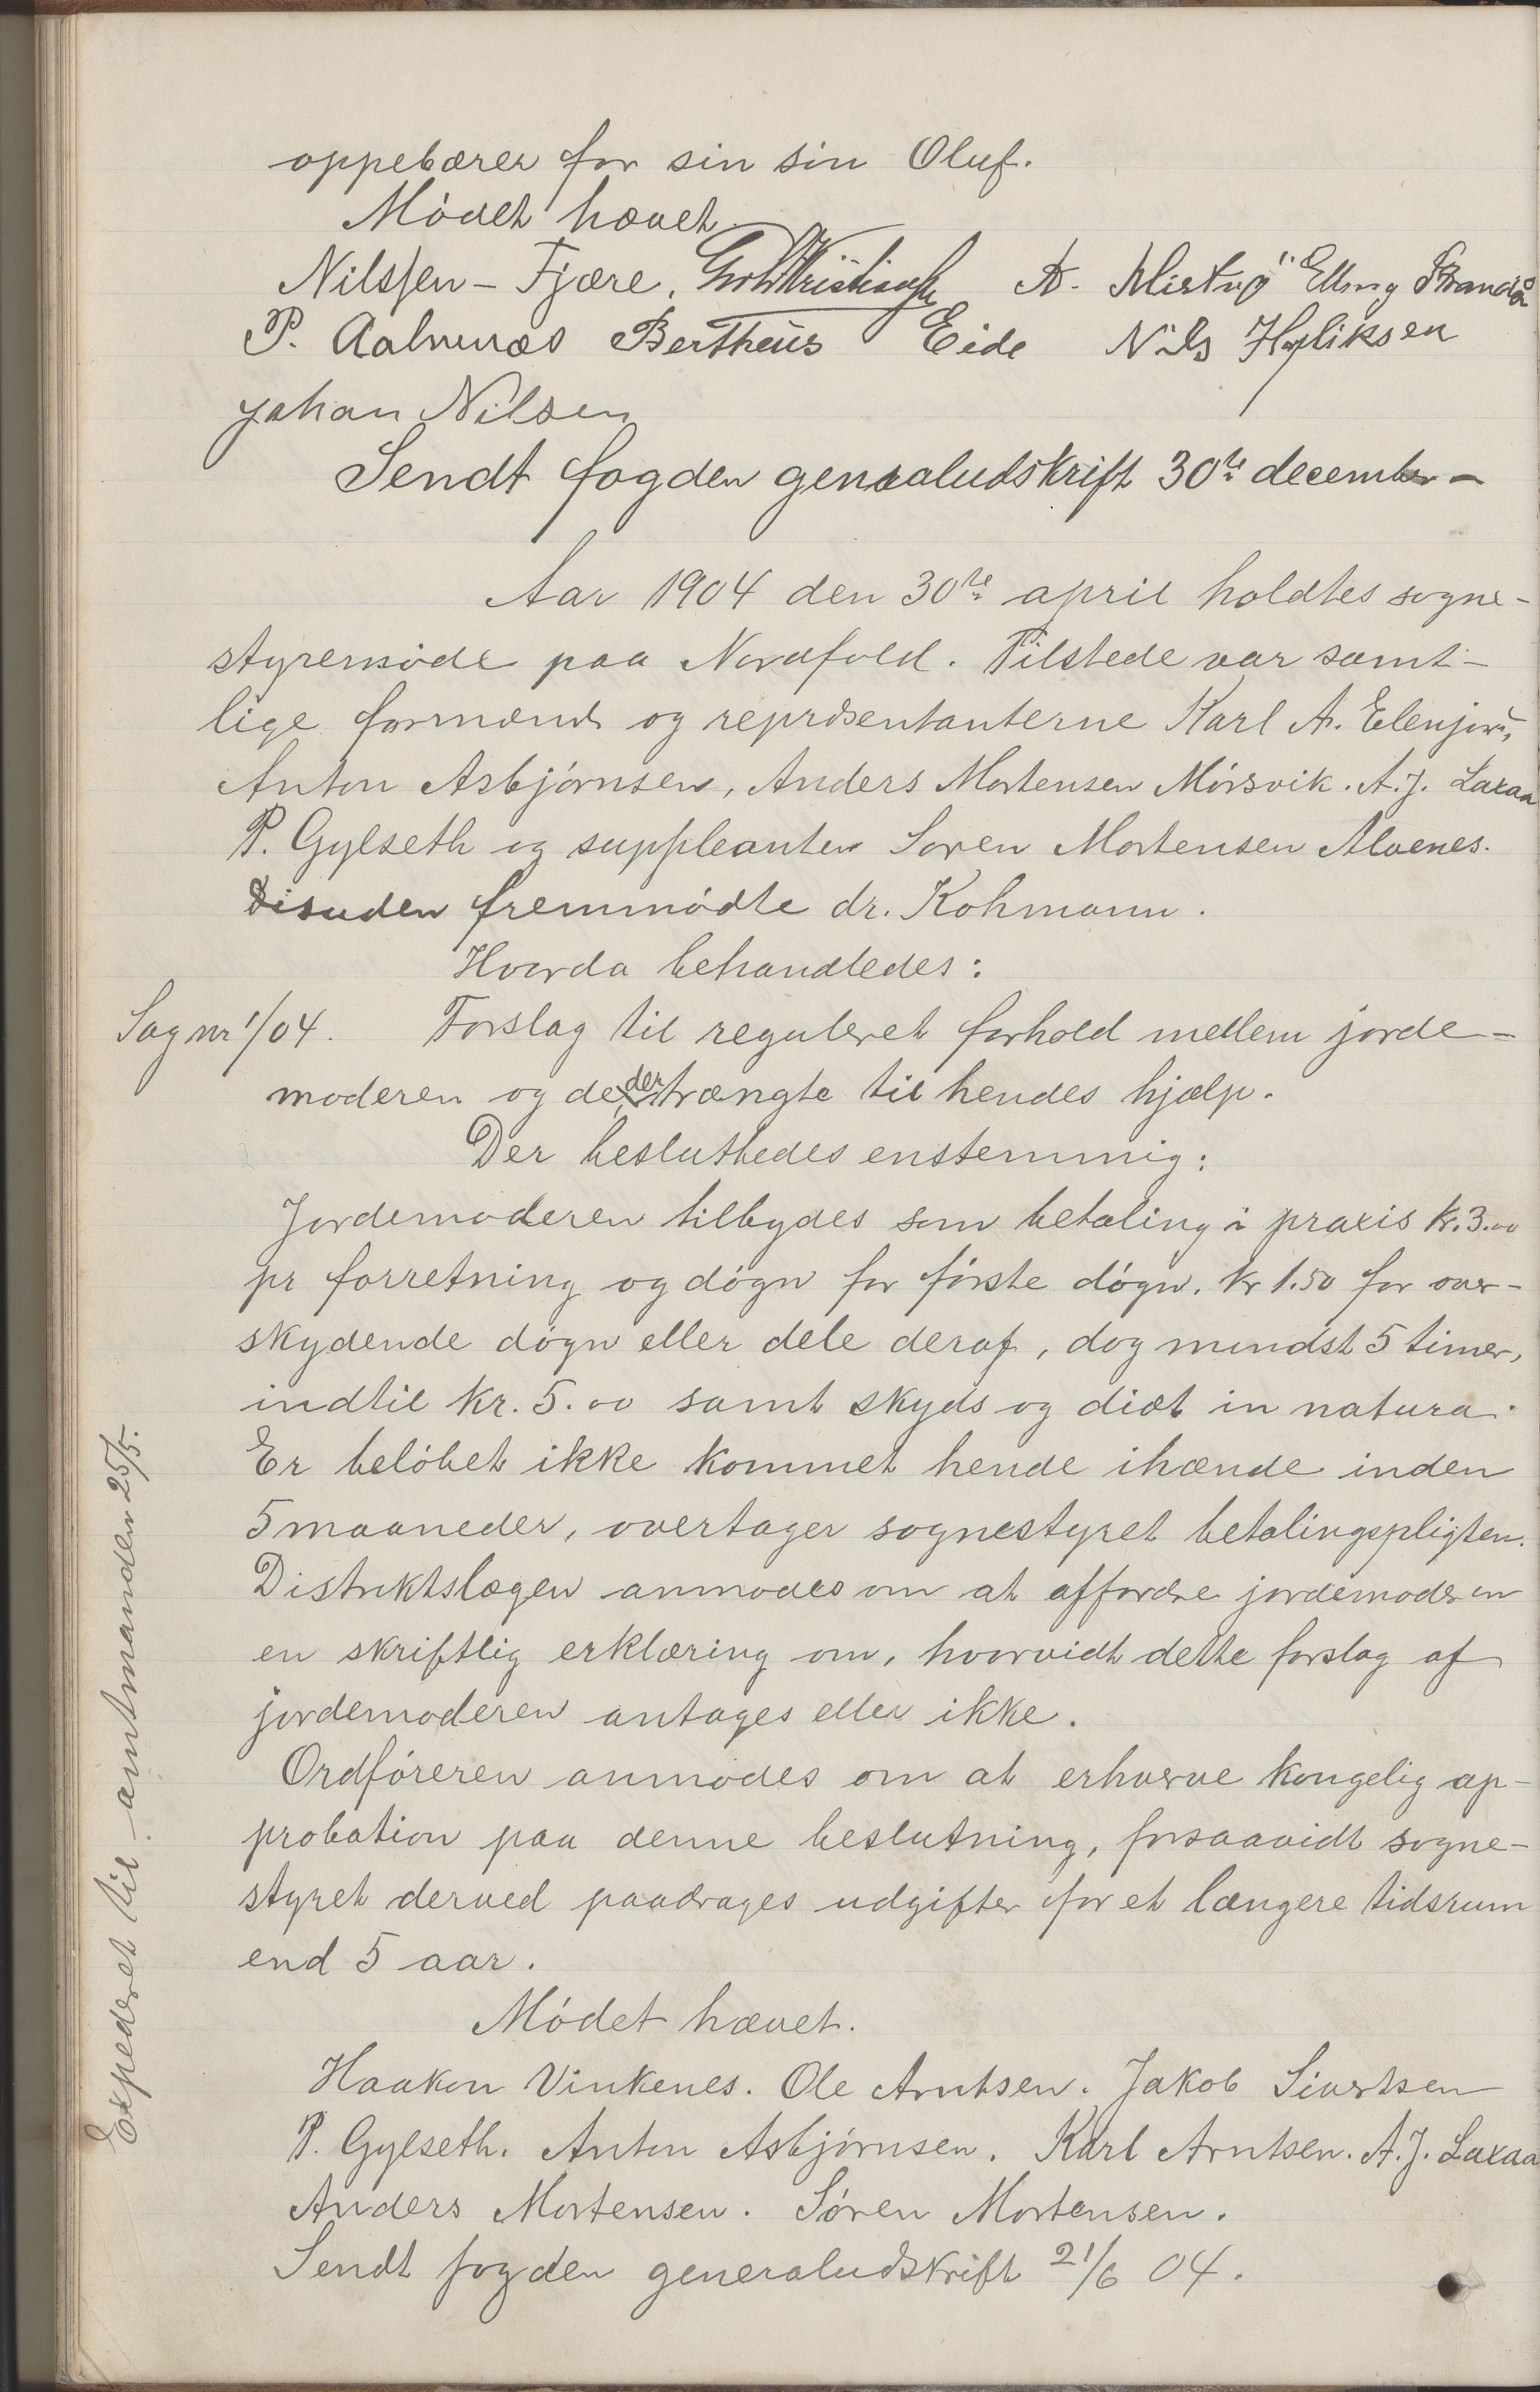 oppebærer for sin sön Oluf.
Mödet hævet
Nilssen - Fjære. A. Elling Strandå
P. Aalmenæs Bertheus Eide Nils
Johan Nilsen
Sendt fogden generaludskrift 30te december -
Aar 1904 den 30te april holdtes sogne-
styremöde paa Nordfold. Tilstede var samt-
lige formænd og repræsentanterne Karl A. Elenjord,
Anton Asbjörnsen, Anders Mortensen Mörsvik. A. J. Laxaa
P. Gylseth og suppleanten Sören Mortensen Alvenes.
Disuden fremmödte dr. Kohmann.
Hvorda behandledes:
Sag nr 1/04. Forslag til reguleret forhold mellem jorde-
moderen og de der trængte til hendes hjælp.
Der besluttedes enstemmig:
Jordemoderen tilbydes som betaling i praxis kr. 3.00
pr forretning og dögn for förste dögn, kr 1.50 for over-
skydende dögn eller dele deraf, dog mindst 5 timer,
indtil kr. 5.00 samt skyds og diæt in natura.
Er belöbet ikke kommet hende ihænde inden
5 maaneder, overtager sognestyret betalingspligten.
Distriktslægen anmodes om at affordre jordemoderen
en skriftlig erklæring om, hvorvidt dette forslag af
jordemoderen antages eller ikke.
Ordföreren anmodes om at erhverve kongelig ap-
probation paa denne beslutning, forsaavidt sogne-
styret derved paadrages udgifter for et længere tidsrum
end 5 aar.
Mödet hævet.
Haakon Vinkenes. Ole Arntsen. Jakob Sivertsen
P. Gylseth. Anton Asbjörnsen. Karl Arntsen. A. J. Laxaa
Anders Mortensen. Sören Mortensen.
Sendt fogden generaludskrift 21/6 04.
Expederet til amtmanden 25/5.